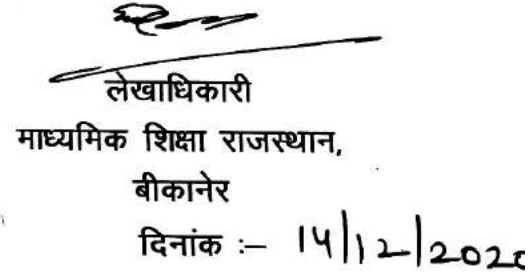 लेखाधिकारी
माध्यमिक शिक्षा राजस्थान,
बीकानेर
दिनांक :– 14/12/2020